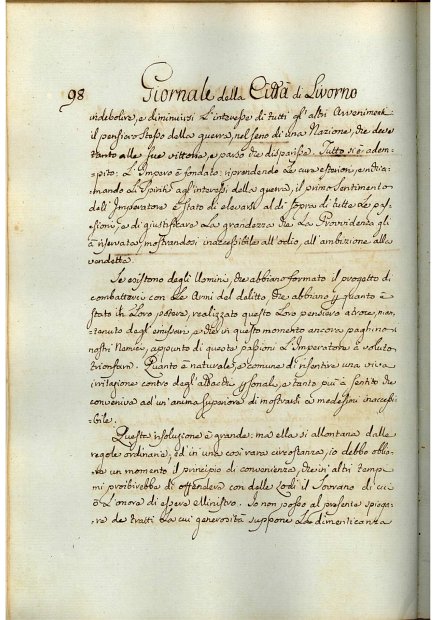 98 Giornale della Città di Livorno
indebolire, e diminuirsi l'interesse di tutti gl'altri Avvenimenti
il pensiero stesso della guerra, nel seno di una Nazione, che deve
tanto alle sue vittorie, e parso che disparisse. Tutto si è adem=
=pito: L'Impero è fondato: riprendendo le cure esteriori, e richia=
=mando lo Spirito agl'interessi della guerra, il primo Sentimento
dell'Imperatore è stato di elevarsi al di sopra di tutte le pas=
=sioni, e di giustificare la grandezza che la Provvidenza gli
à riservata, mostrandosi inaccessibile all'odio, all'ambizione alla
vendetta.
Se esistono degli Uomini, che abbiano formato il progetto di
combatterci con le Armi del delitto, che abbiano p quanto è
stato in loro potere, realizzato questo loro pensiero atroce, man=
=tenuto degl'emissari, e che in questo momento ancora paghino i
nostri Nemici, appunto di queste passioni l'Imperatore à voluto
trionfare. Quanto è naturale, e comune di risentire una viva
irritazione contro degl'attacchi psonali, e tanto più à sentito che
conveniva ad un'anima superiore di mostrarsi a medesimi inacces=
=sibile.
Questa risoluzione è grande: ma ella si allontana dalle
regole ordinarie, ed in una così rara circostanza, io debbo oblia=
=re un momento il principio di convenienza, che in altri tem=
=pi proibirebbe di offendere con delle Lodi il Sovrano di cui
ò l'onore di essere Ministro. Io non posso al presente spiega=
=re de tratti la cui generosità suppone la dimenticanza